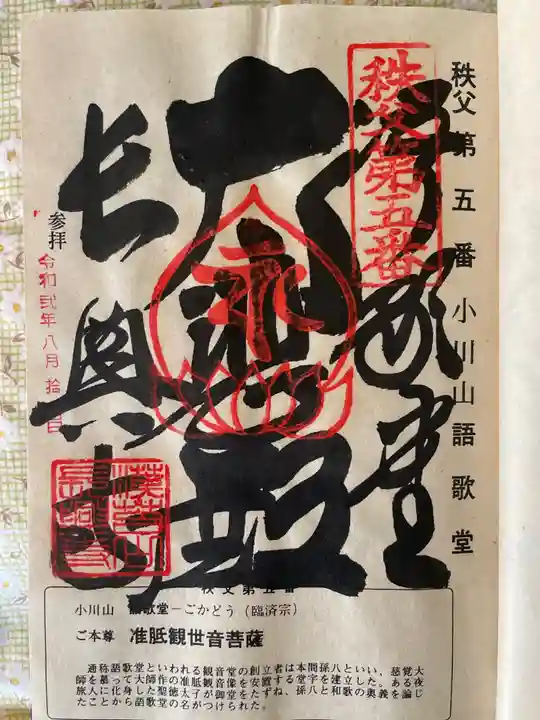 秩父第五番 小川山語歌堂
秩父第五番
大悲殿
長興寺
参拝
令和弐年八月拾
秩父第五番
小川山 語歌堂－ごかどう（臨済宗）
ご本尊 准胝観世音菩薩
通称語歌堂といわれる観音堂の創立者は本間孫八といい、慈覚大
師を慕って大師作の准胝観音像を安置する堂宇を建立した。ある夜
旅人に化身した聖徳太子が御堂をたずね、孫八と和歌の奥義を論じ
たことから語歌堂の名がつけられた。